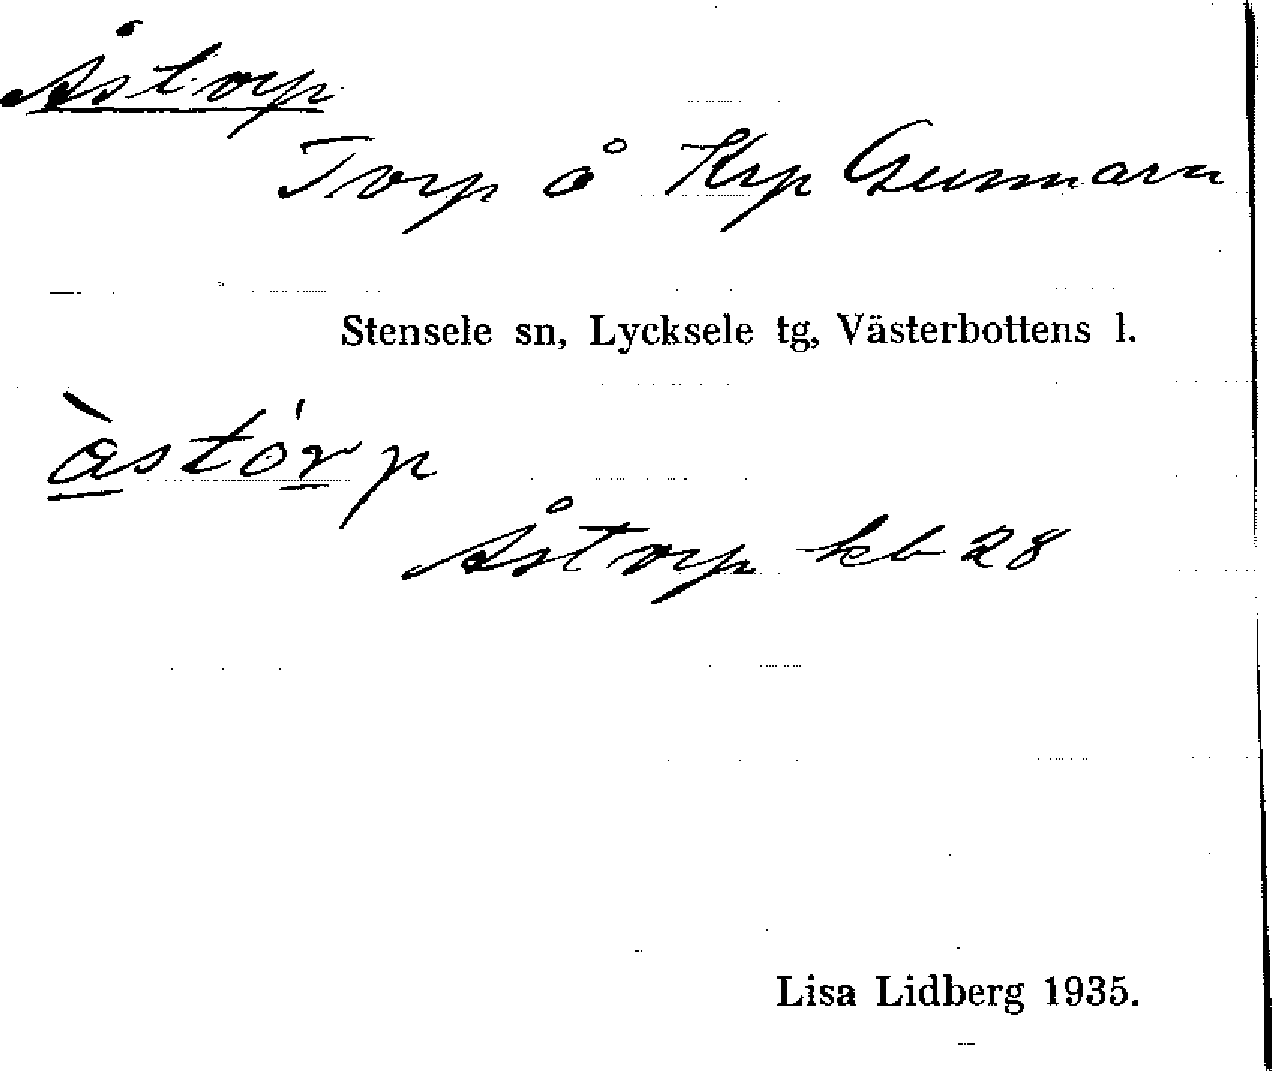 Åstorp
Torp å Krp Gunnarn
Stensele sn, Lycksele tg, Västerbottens l.
àstórp
Åstorp kb 28
Lisa Lidberg 1935.